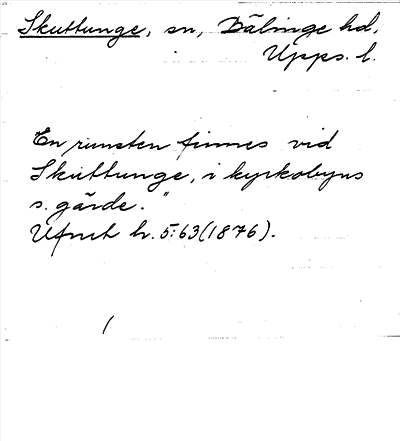 Skuttunge, sn, Bälinge hd,
Upps. l.
"En runsten finnes vid
Skuttunge, i kyrkobyns
s. gärde."
Ufmt h. 5:63(1876).